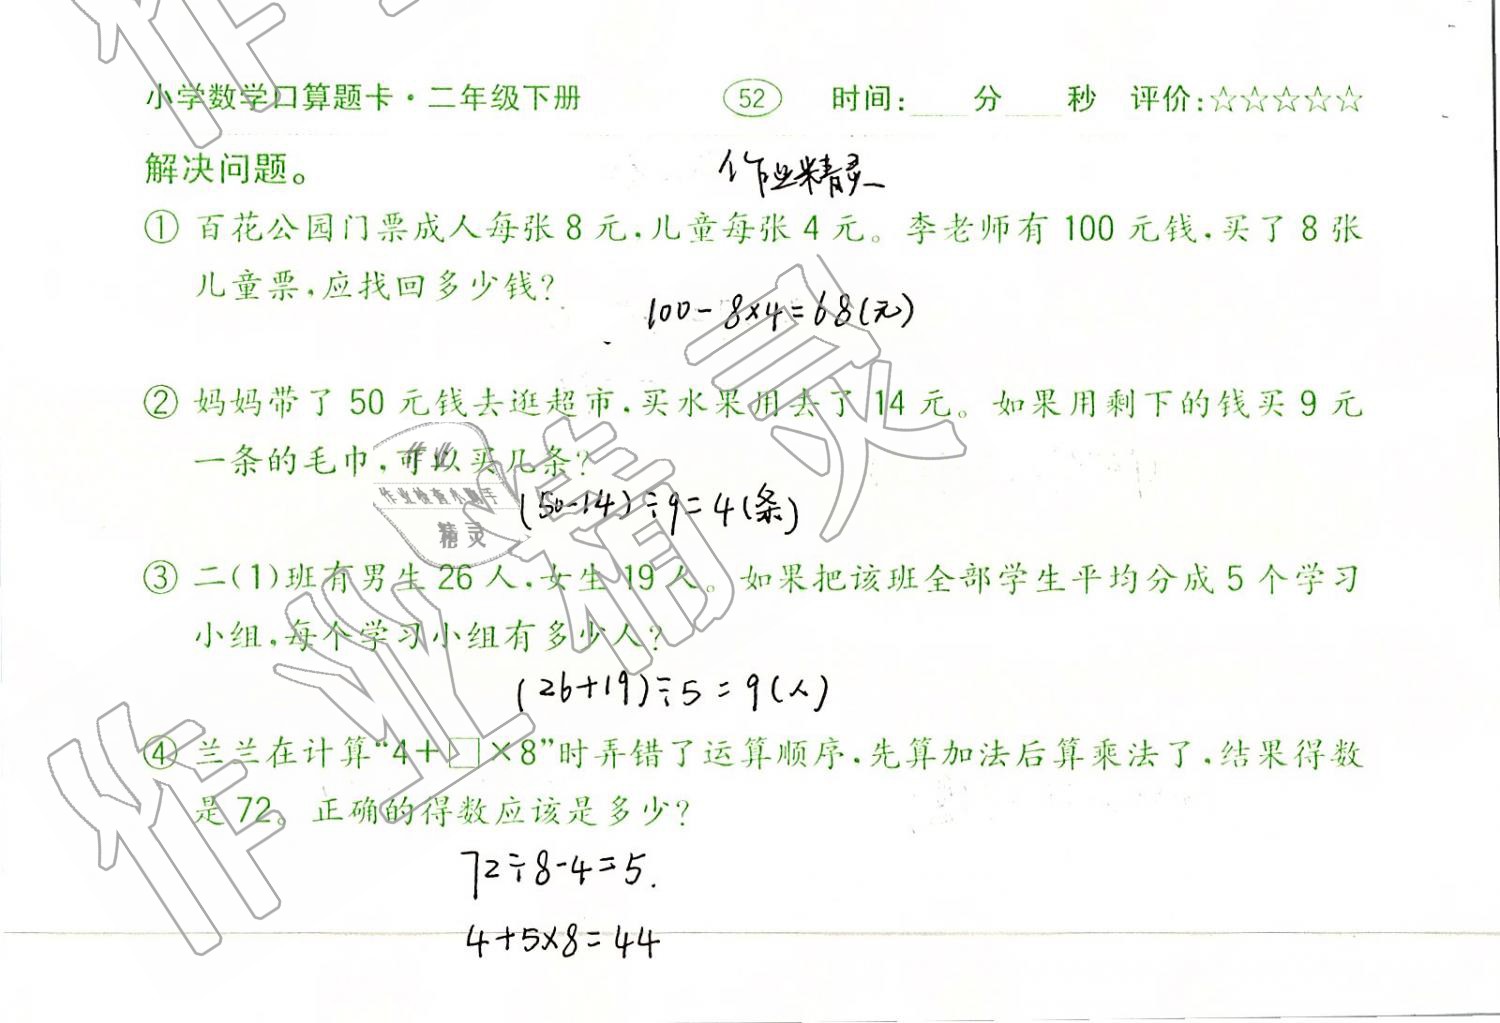 小学数学口算题卡·二年级下册 52 时间: 分 秒 评价:☆☆☆☆☆
解决问题。
作业精灵
① 百花公园门票成人每张8元,儿童每张4元。李老师有100元钱,买了8张
儿童票,应找回多少钱?
100-8×4=68(元)
② 妈妈带了50元钱去逛超市,买水果用去了14元。如果用剩下的钱买9元
一条的毛巾,可以买几条?
(50-14)÷9=4(条)
③ 二(1)班有男生26人,女生19人。如果把该班全部学生平均分成5个学习
小组,每个学习小组有多少人?
(26+19)÷5=9(人)
④ 兰兰在计算“4+□×8”时弄错了运算顺序,先算加法后算乘法了,结果得数
是72。正确的得数应该是多少?
72÷8-4=5.
4+5×8=44
作业
作业检查小助手
精灵
作业精灵